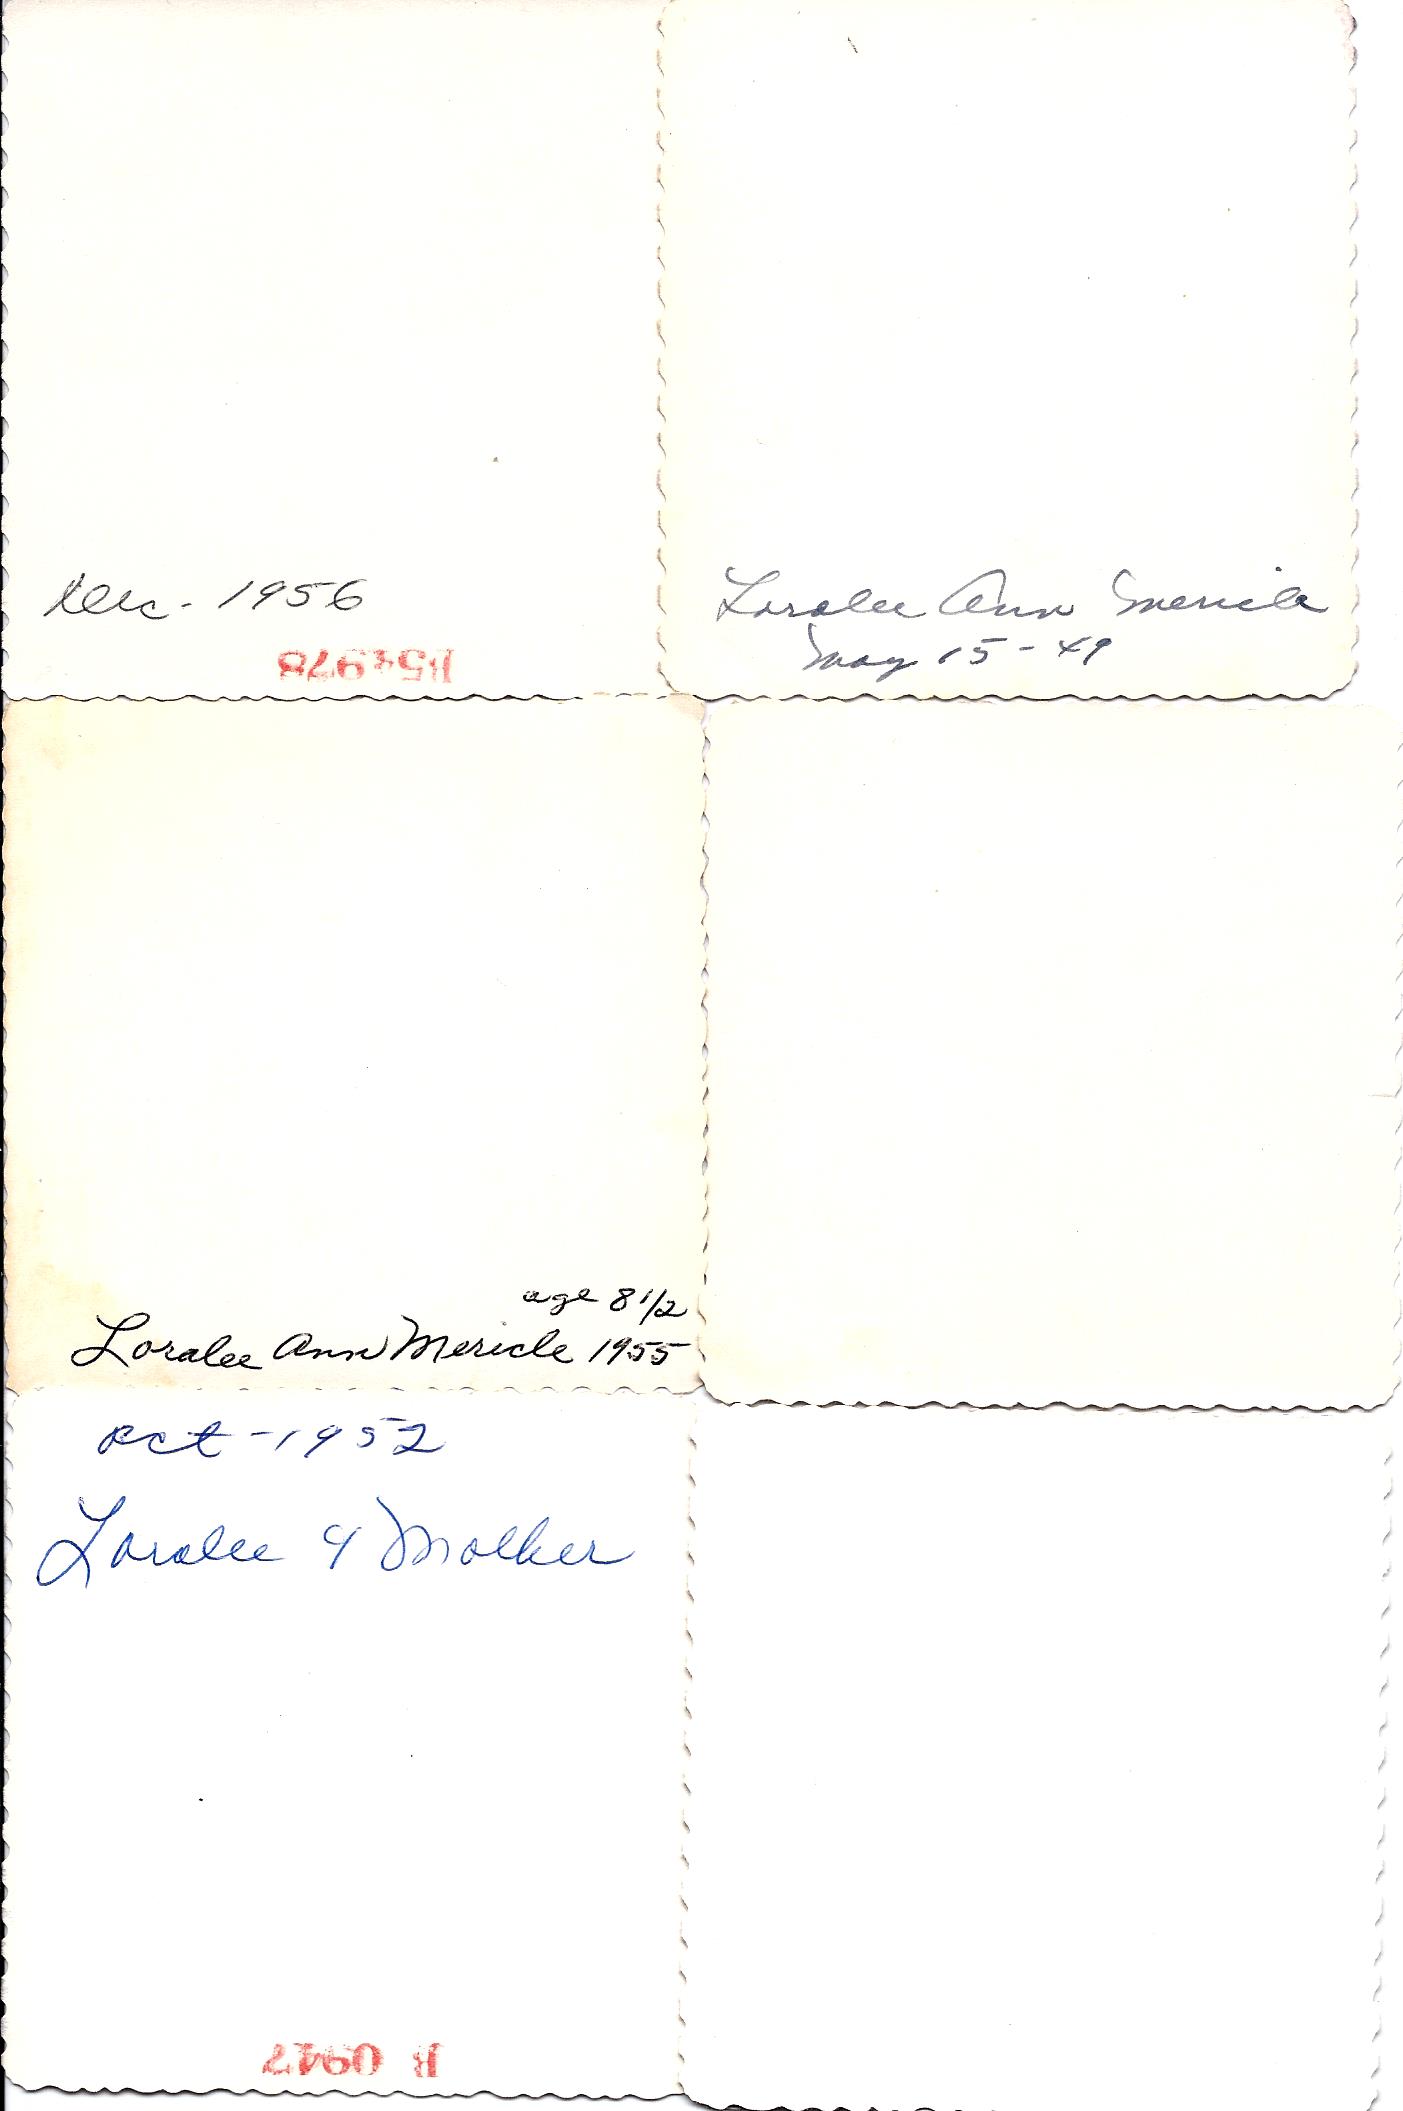 Dec - 1956
B54978
Loralee Ann Mericle
May 15 - 49
age 8 1/2
Loralee Ann Mericle 1955
Oct - 1952
Loralee & Mother
B 0947